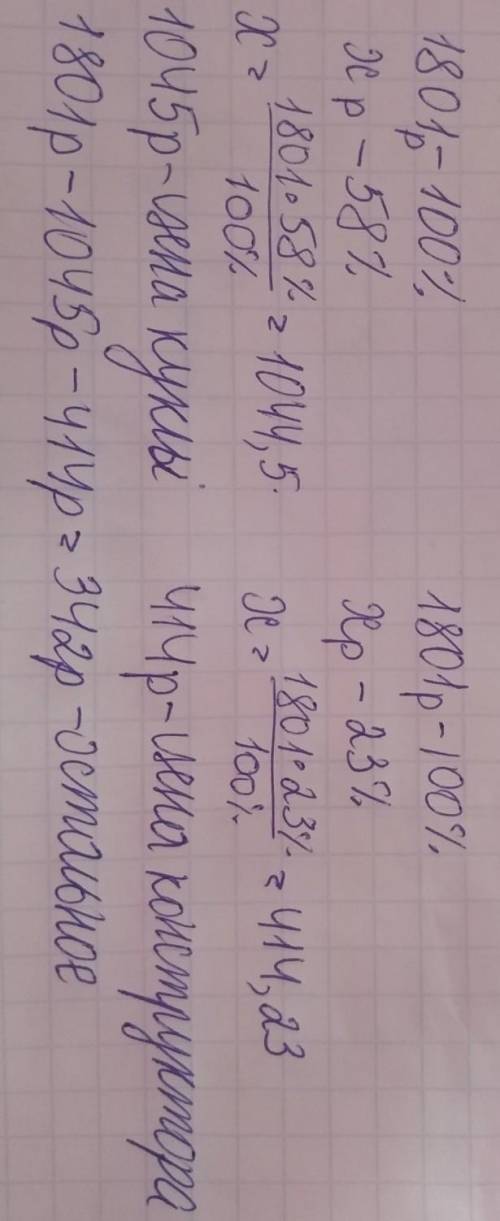 1801р - 100%
xр - 58%
x = 1801·58% / 100% = 1044,5
1045р - цена куклы
1801р - 100%
xр - 23%
x = 1801·23% / 100% = 414,23
414р - цена конструктора
1801р - 1045р - 414р = 342р - остальное